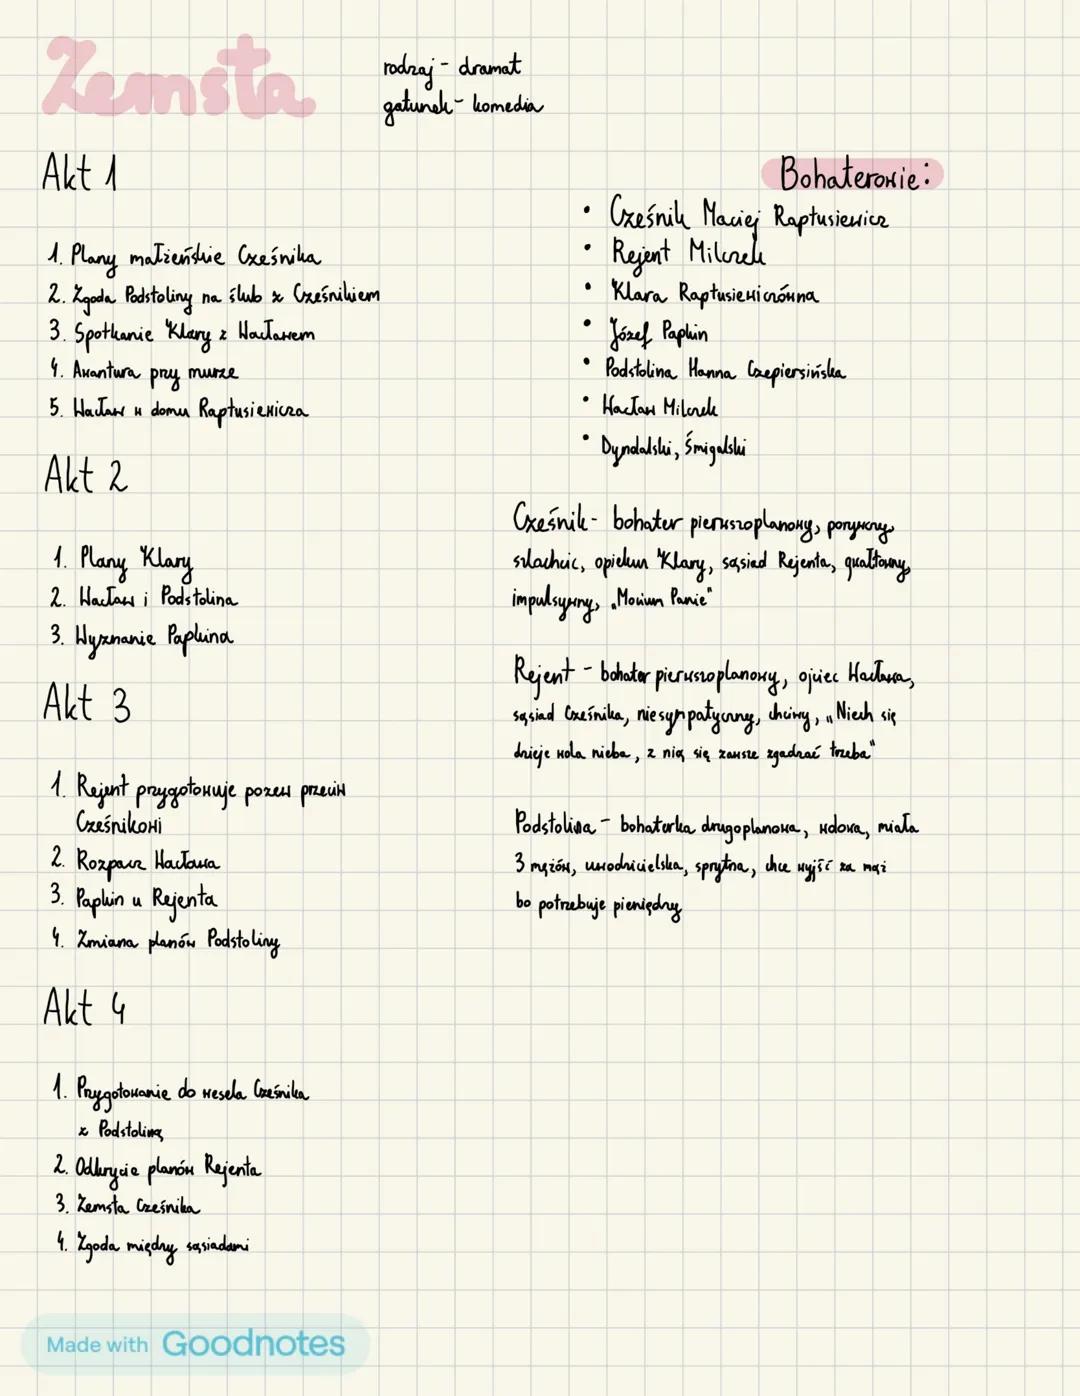 Zemsta
rodzaj - dramat
gatunek - komedia
Akt 1
1. Plany małżeńskie Cześnika
2. Zgoda Podstoliny na ślub z Cześnikiem
3. Spotkanie Klary z Wacławem
4. Awantura przy murze
5. Wacław w domu Raptusiewicza
Akt 2
1. Plany Klary
2. Wacław i Podstolina
3. Wyznanie Papkina
Akt 3
1. Rejent przygotowuje pozew przeciw
Cześnikowi
2. Rozpacz Wacława
3. Papkin u Rejenta
4. Zmiana planów Podstoliny
Akt 4
1. Przygotowanie do wesela Cześnika
z Podstoliną
2. Odkrycie planów Rejenta
3. Zemsta Cześnika
4. Zgoda między sąsiadami
Bohaterowie:
• Cześnik Maciej Raptusiewicz
• Rejent Milczek
• Klara Raptusiewiczówna
• Józef Papkin
• Podstolina Hanna Czepiersińska
• Wacław Milczek
• Dyndalski, Śmigalski
Cześnik - bohater pierwszoplanowy, porywczy,
szlachcic, opiekun Klary, sąsiad Rejenta, gwałtowny,
impulsywny, „Mocium Panie"
Rejent - bohater pierwszoplanowy, ojciec Wacława,
sąsiad Cześnika, niesympatyczny, chciwy, „Niech się
dzieje wola nieba, z nią się zawsze zgadzać trzeba"
Podstolina - bohaterka drugoplanowa, wdowa, miała
3 mężów, uwodzicielska, sprytna, chce wyjść za mąż
bo potrzebuje pieniędzy
Made with Goodnotes